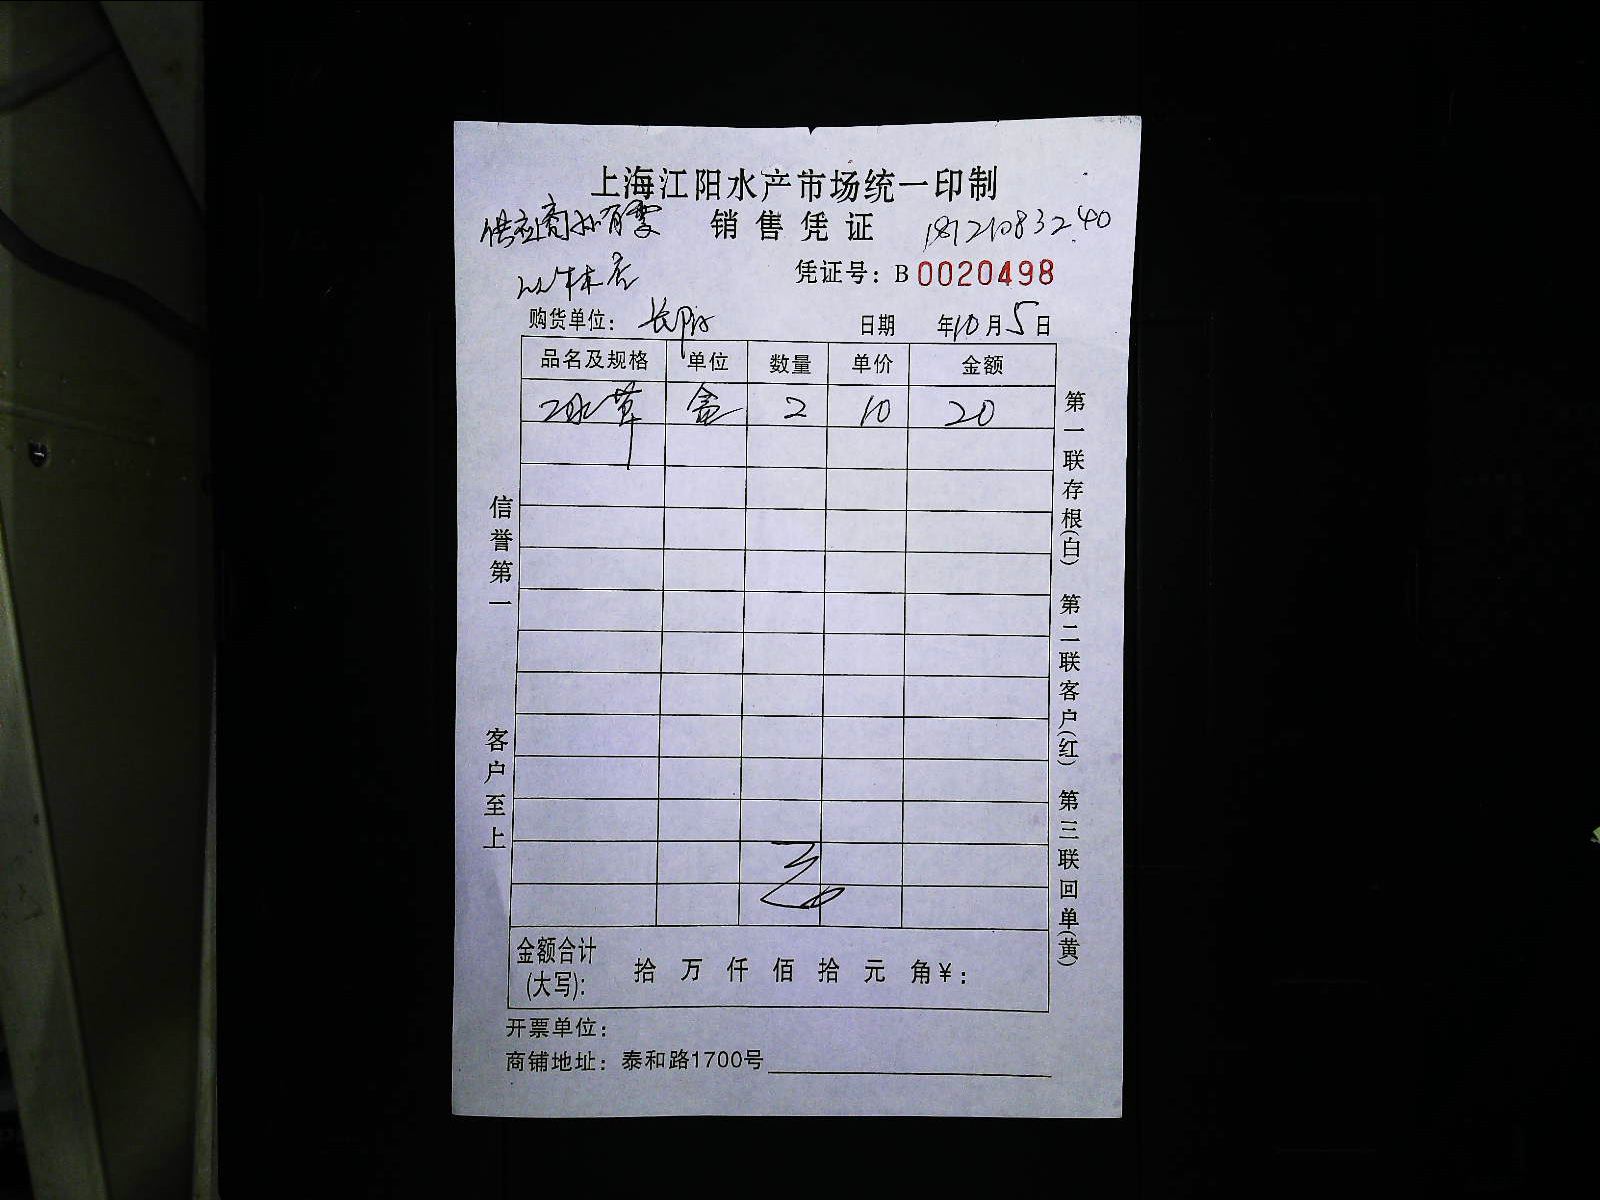 上海江阳水产市场统一印制
供应商孙有雯 销售凭证 18121083240
凭证号：B 0020498
购货单位： 长阳 日期 年10月5日
品名及规格 单位 数量 单价 金额
冰草 盒 2 10 20
信誉第一
客户至上
第一联存根(白) 第二联客户(红) 第三联回单(黄)
金额合计(大写)： 拾 万 仟 佰 拾 元 角￥：
开票单位：
商铺地址：泰和路1700号